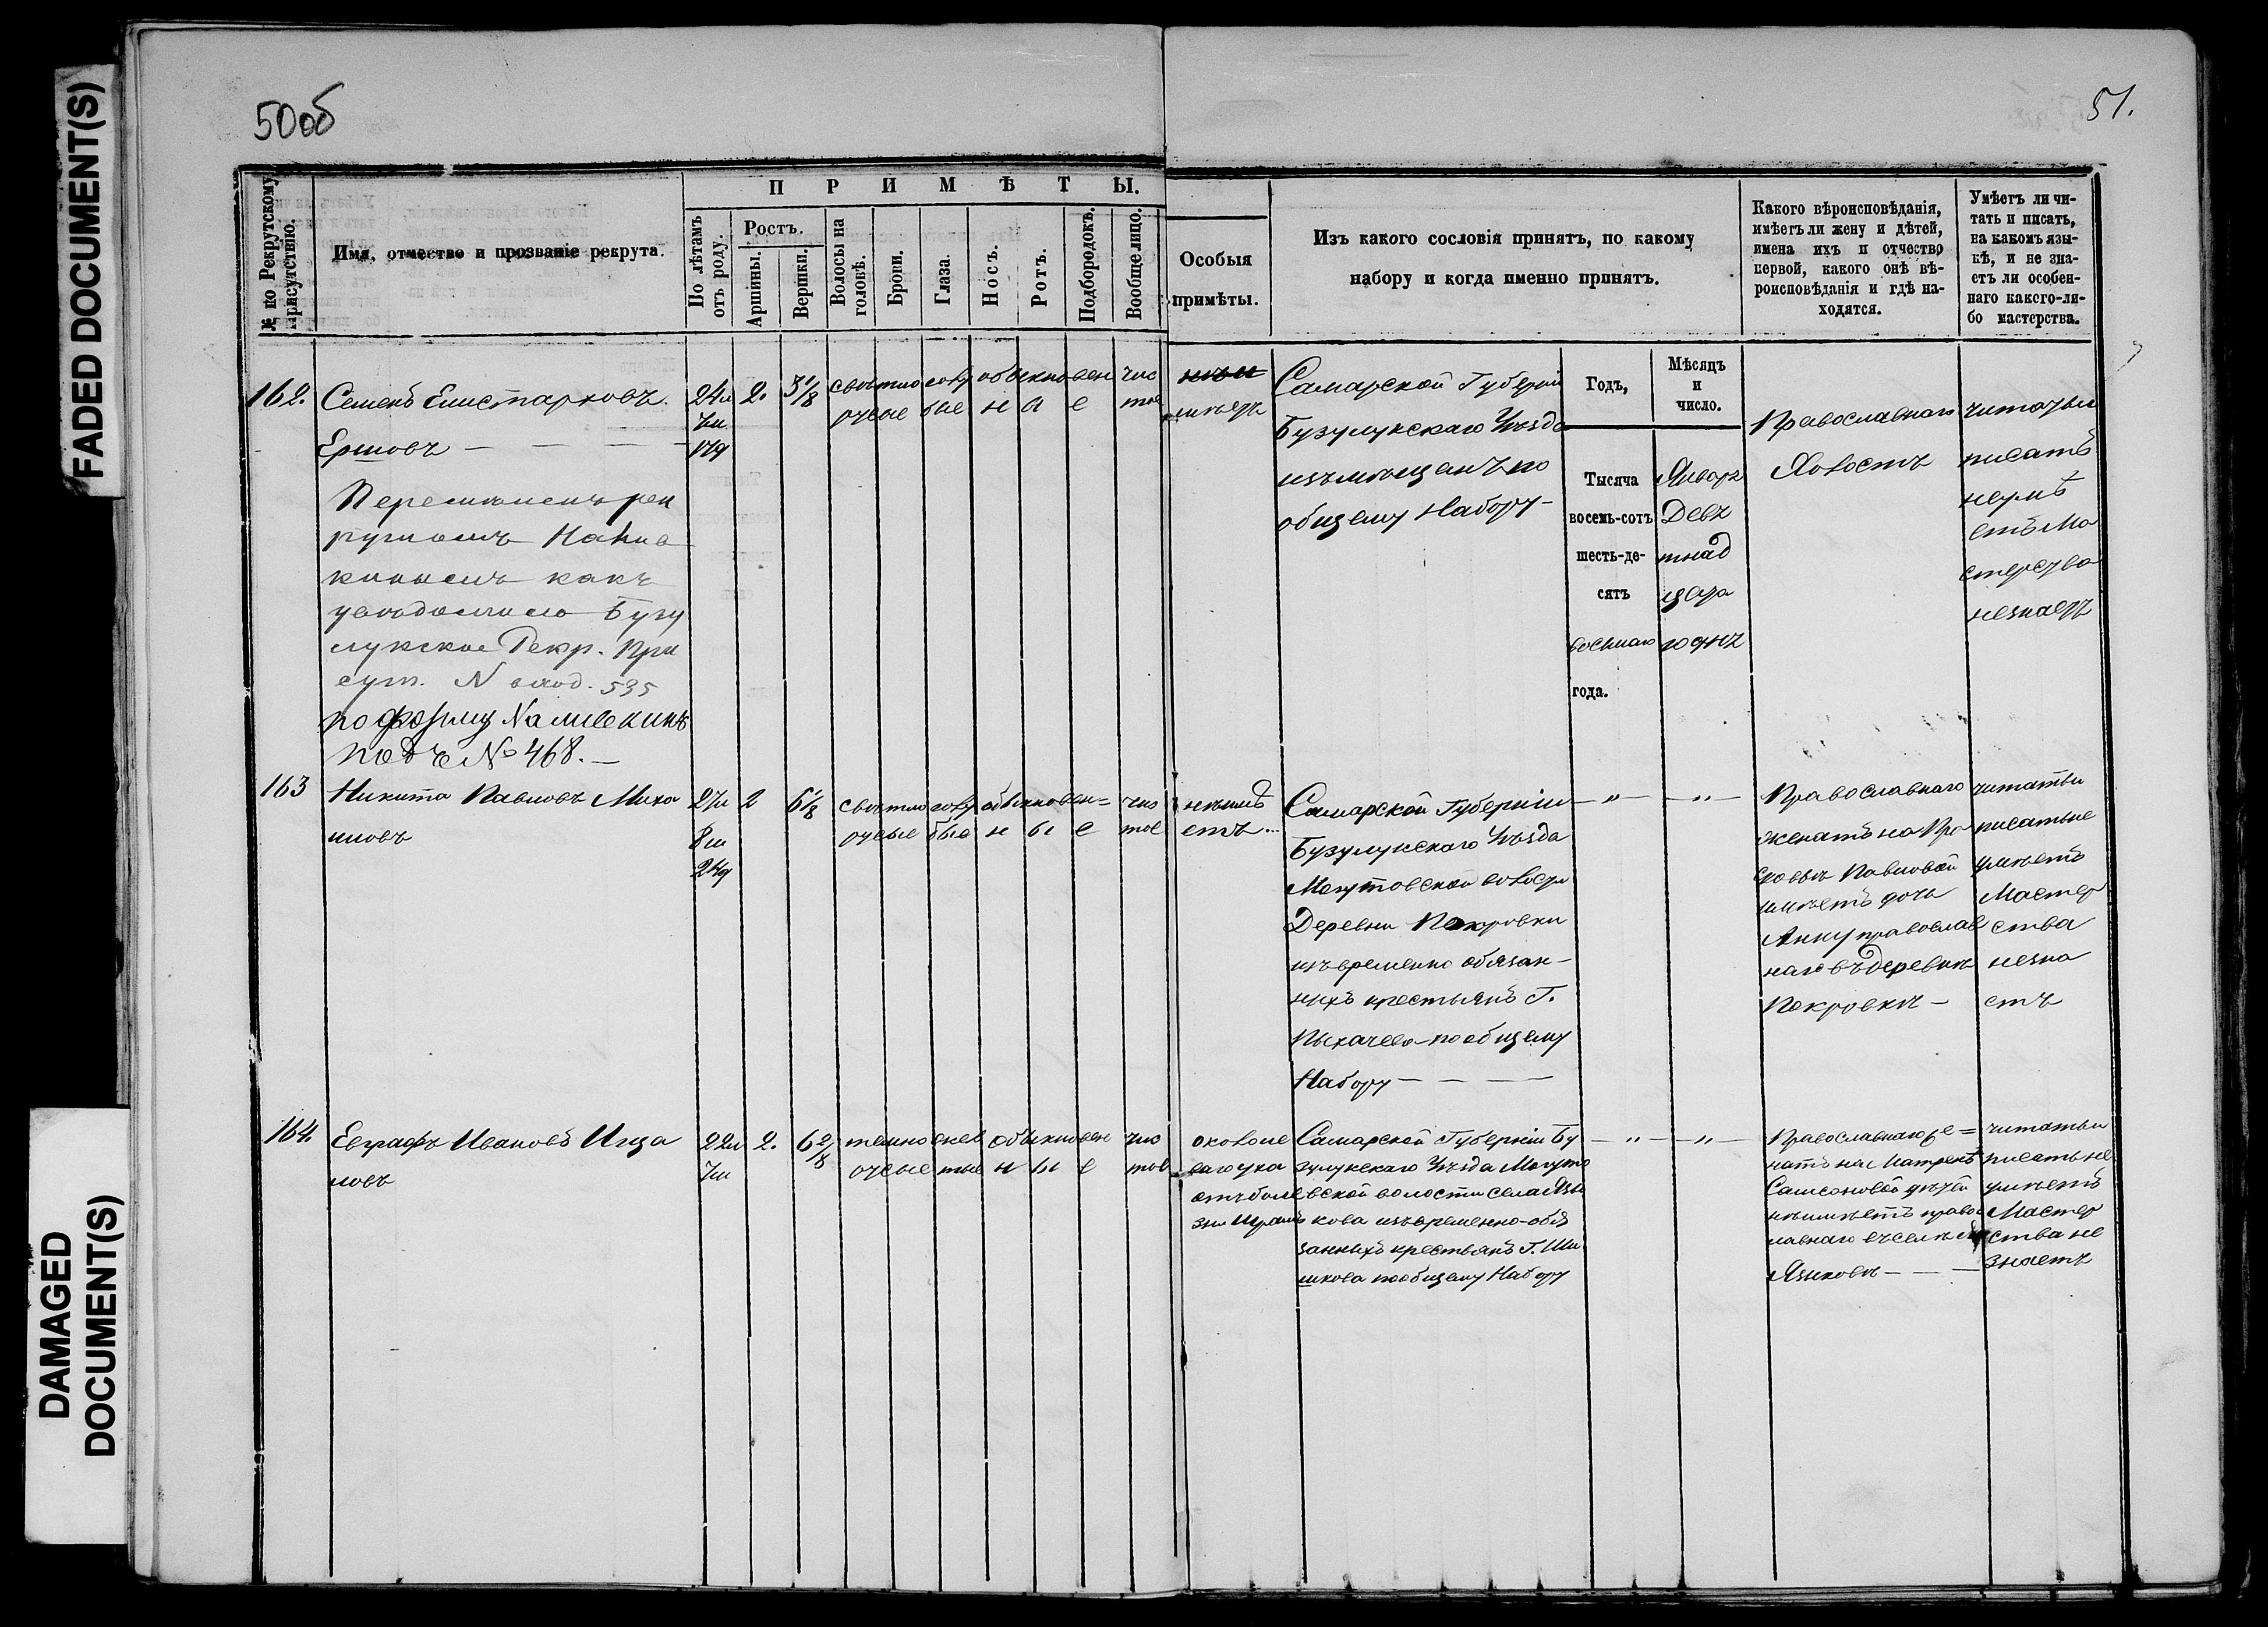 FADED DOCUMENT(S)
DAMAGED
DOCUMENT(S)
50об
51.
№ по Рекрутскому
Присутствію.
Имя, отчество и прозваніе рекрута.
ПРИМѢТЫ.
По лѣтамъ
отъ роду.
Ростъ.
Аршины.
Вершки.
Волосы на
головѣ.
Брови.
Глаза.
Носъ.
Ротъ.
Подбородокъ.
Вообще лицо.
Особыя
примѣты.
Изъ какого сословія принятъ, по какому
набору и когда именно принятъ.
Какого вѣроисповѣданія,
имѣетъ ли жену и дѣтей,
имена ихъ и отчество
первой, какого онѣ вѣ-
роисповѣданія и гдѣ на-
ходятся.
Умѣетъ ли чи-
тать и писать,
на какомъ язы-
кѣ, и не зна-
етъ ли особен-
наго какого-ли-
бо мастерства.
Годъ,
Мѣсяцъ
и
число.
162.
Семенъ Елистарховъ
Ершовъ
рек
рутомъ
какъ
увѣдомило Бузу
лукское Рекр. При
сут. N вход. 535
подъ № 468.
24л
7м
17д
2.
3 1/8
свѣтло
русые
голу
бые
обыкновен
н ы е
чис
тое
имѣетъ
Самарской Губерніи
Бузулукскаго Уѣзда
изъ мѣщанъ по
общему Набору
Тысяча
восемь-сотъ
шесть-де-
сятъ
восьмаго
года.
Января
Девя
тнад
цата
го дня
Православнаго
Холостъ
читать и
писать
неумѣ
етъ Ма
стерства
незнаетъ
163
Никита Павловъ Миха
иловъ
27л
8м
24д
2
6 1/8
свѣтло
русые
голу
бые
обыкновен=
н ы е
чис
тое
неимѣ
етъ...
Самарской Губерніи
Бузулукскаго Уѣзда
Могутовской волости
Деревни Покровки
изъ временно обязан-
ныхъ крестьянъ Г.
Пыхачева по общему
Набору
— „ —
— „ —
Православнаго
женатъ на
Павловой
имѣетъ дочь
Анну православ
наго въ деревнѣ
Покровкѣ —
читать и
писать не
умѣетъ
Мастер
ства
незна
етъ
164.
Евграфъ Ивановъ
22л
7м
2.
6 2/8
темно
русые
свѣ
тлые
обыкновен
н ы е
чис
тое
около ле
ваго уха
отъ боле
зни шрамъ
Самарской Губерніи Бу
зулукскаго Уѣзда Могуто
вской волости села Язы
кова изъ временно-обя
занныхъ крестьянъ Г. Ши
шкова по общему Набору
— „ —
— „ —
Православнаго же=
натъ на Матренѣ
Самсоновой дѣтей
неимѣетъ правос
лавнаго въ селѣ
Языковѣ
читать и
писать не
умѣетъ
Мастер
ства не
знаетъ